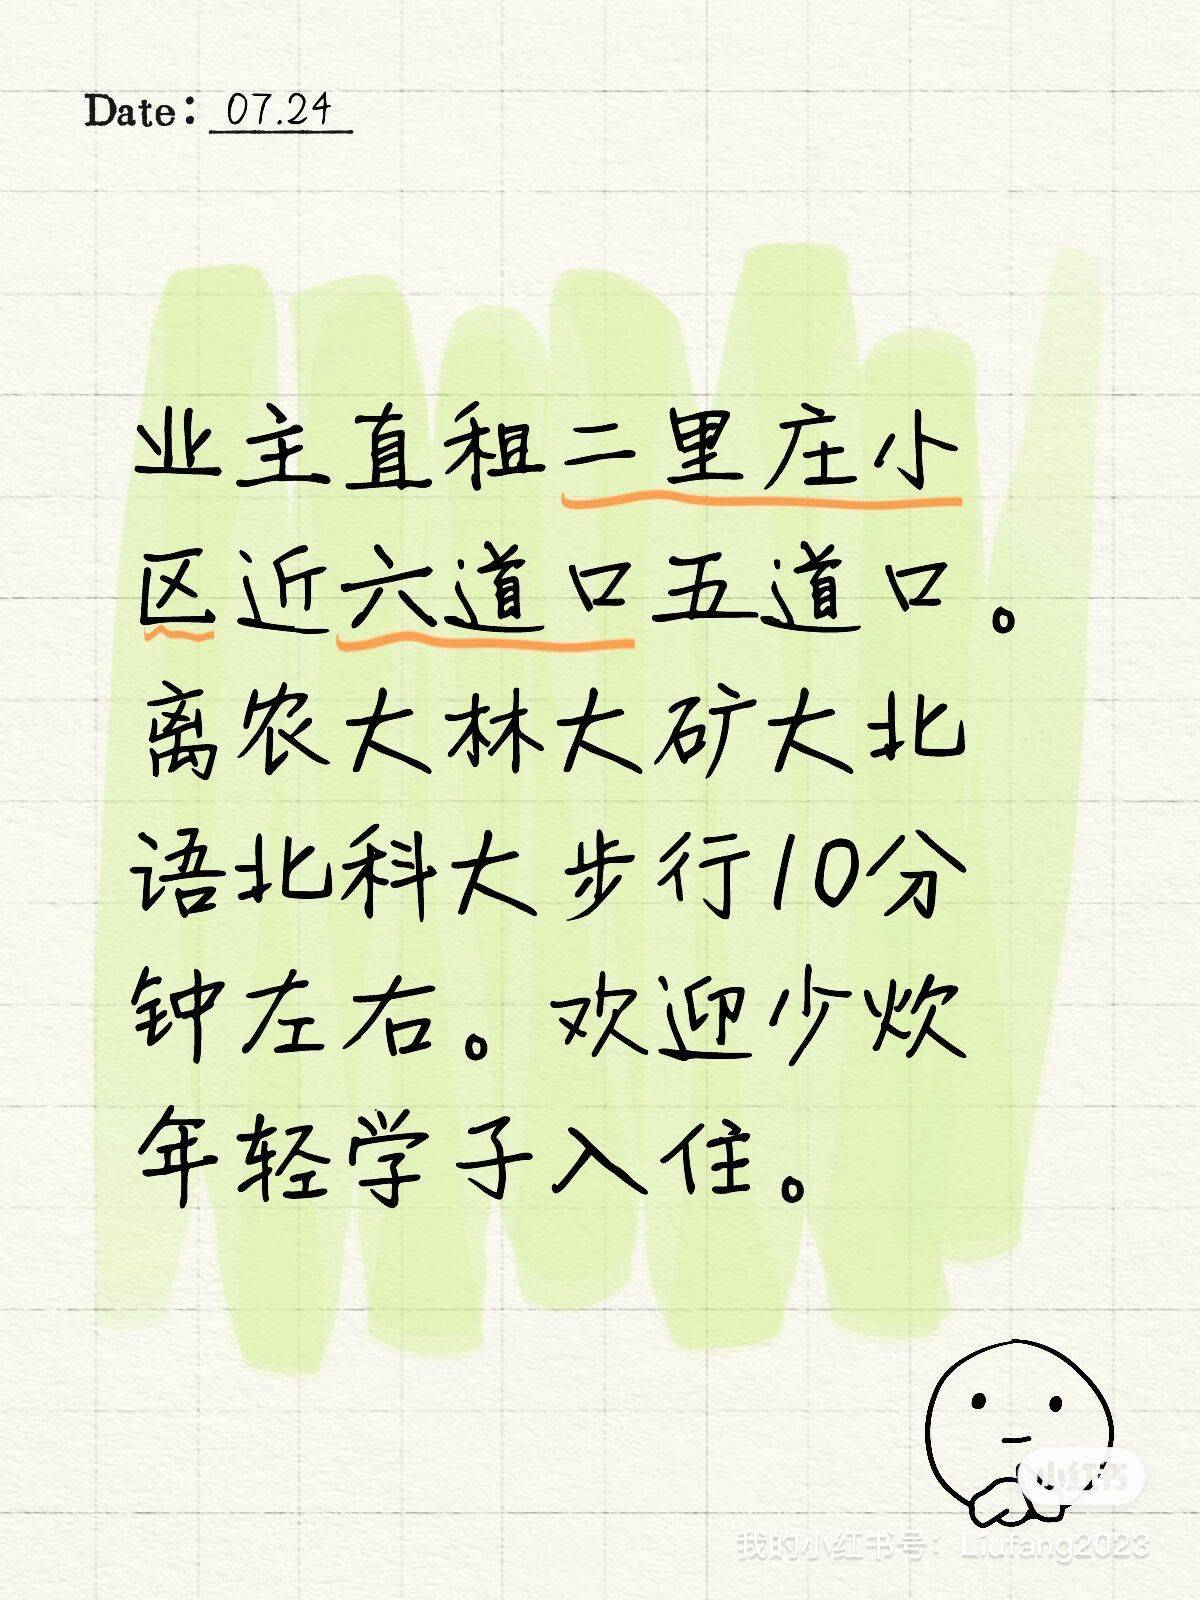 Date: 07.24
业主直租二里庄小
区近六道口五道口。
离农大林大矿大北
语北科大步行10分
钟左右。欢迎少炊
年轻学子入住。
小红书
我的小红书号：Liufang2023